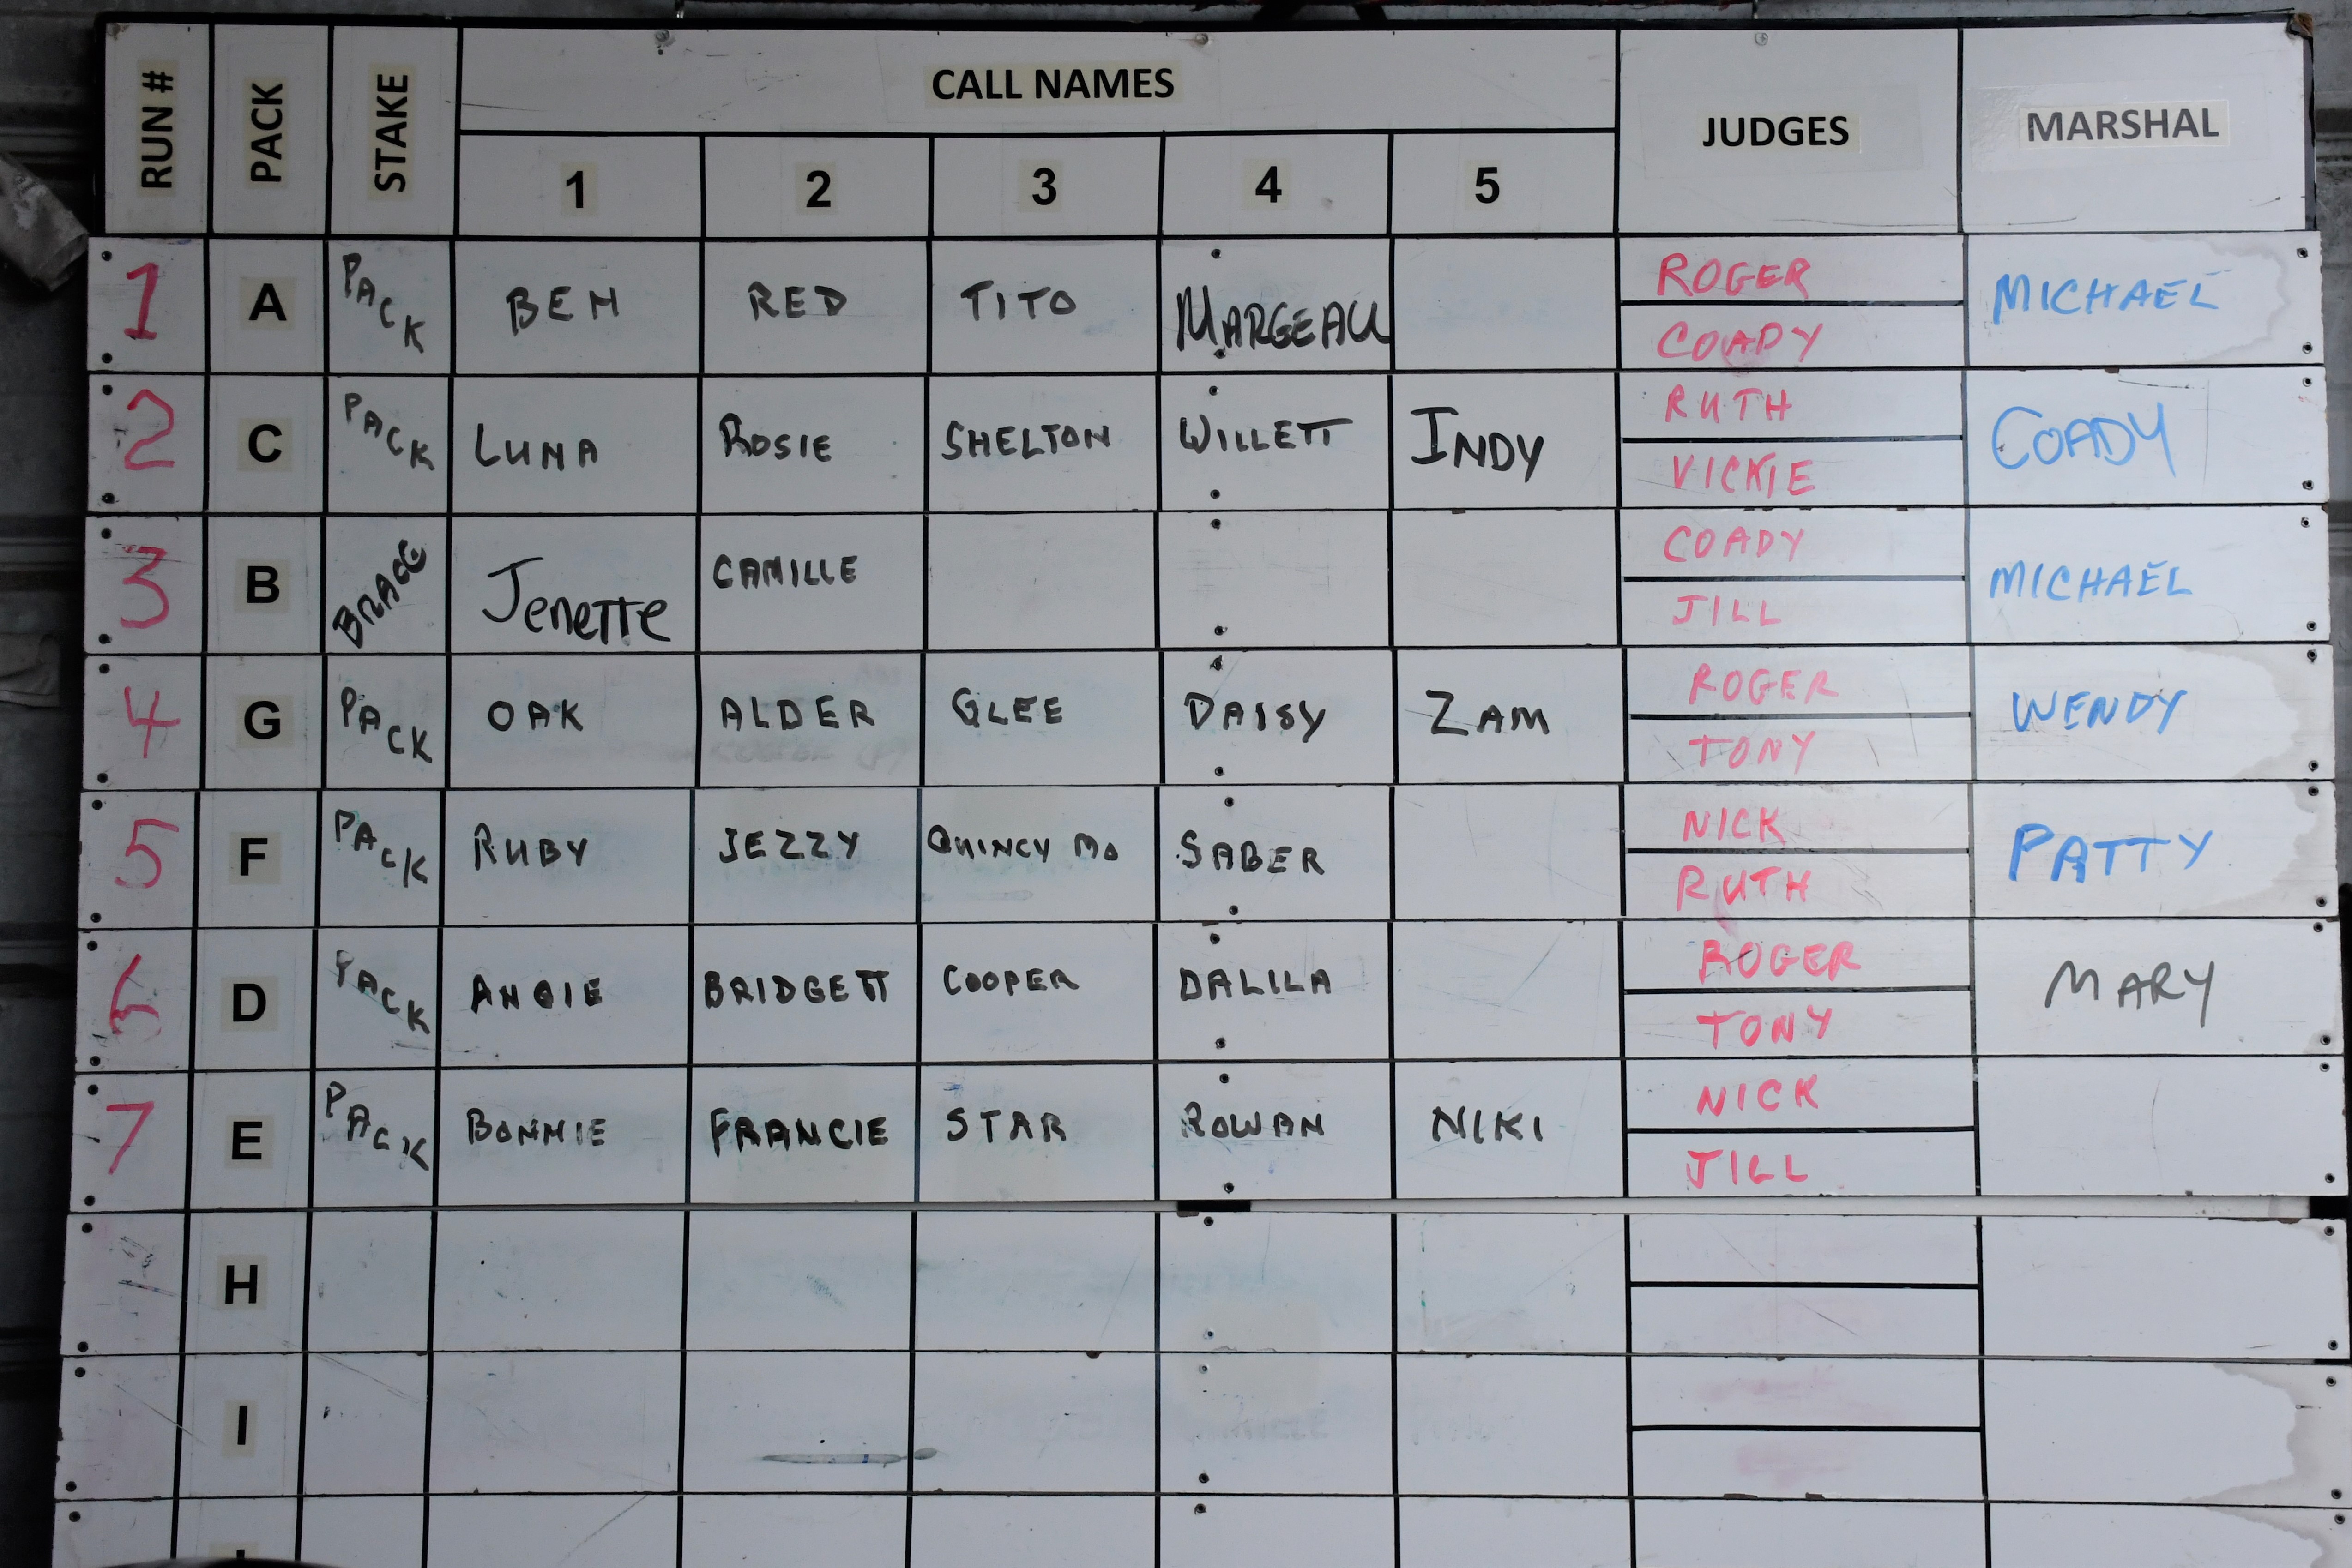 RUN # PACK STAKE CALL NAMES JUDGES MARSHAL
1 2 3 4 5
1 A PACK BEN RED TITO MARGEAU ROGER COADY MICHAEL
2 C PACK LUNA ROSIE SHELTON WILLETT INDY RUTH VICKIE COADY
3 B BRACE Jenette CAMILLE COADY JILL MICHAEL
4 G PACK OAK ALDER GLEE DAISY ZAM ROGER TONY WENDY
5 F PACK RUBY JEZZY QUINCY MO SABER NICK RUTH PATTY
6 D PACK ANGIE BRIDGETT COOPER DALILA ROGER TONY MARY
7 E PACK BONNIE FRANCIE STAR ROWAN NIKI NICK JILL
H
I